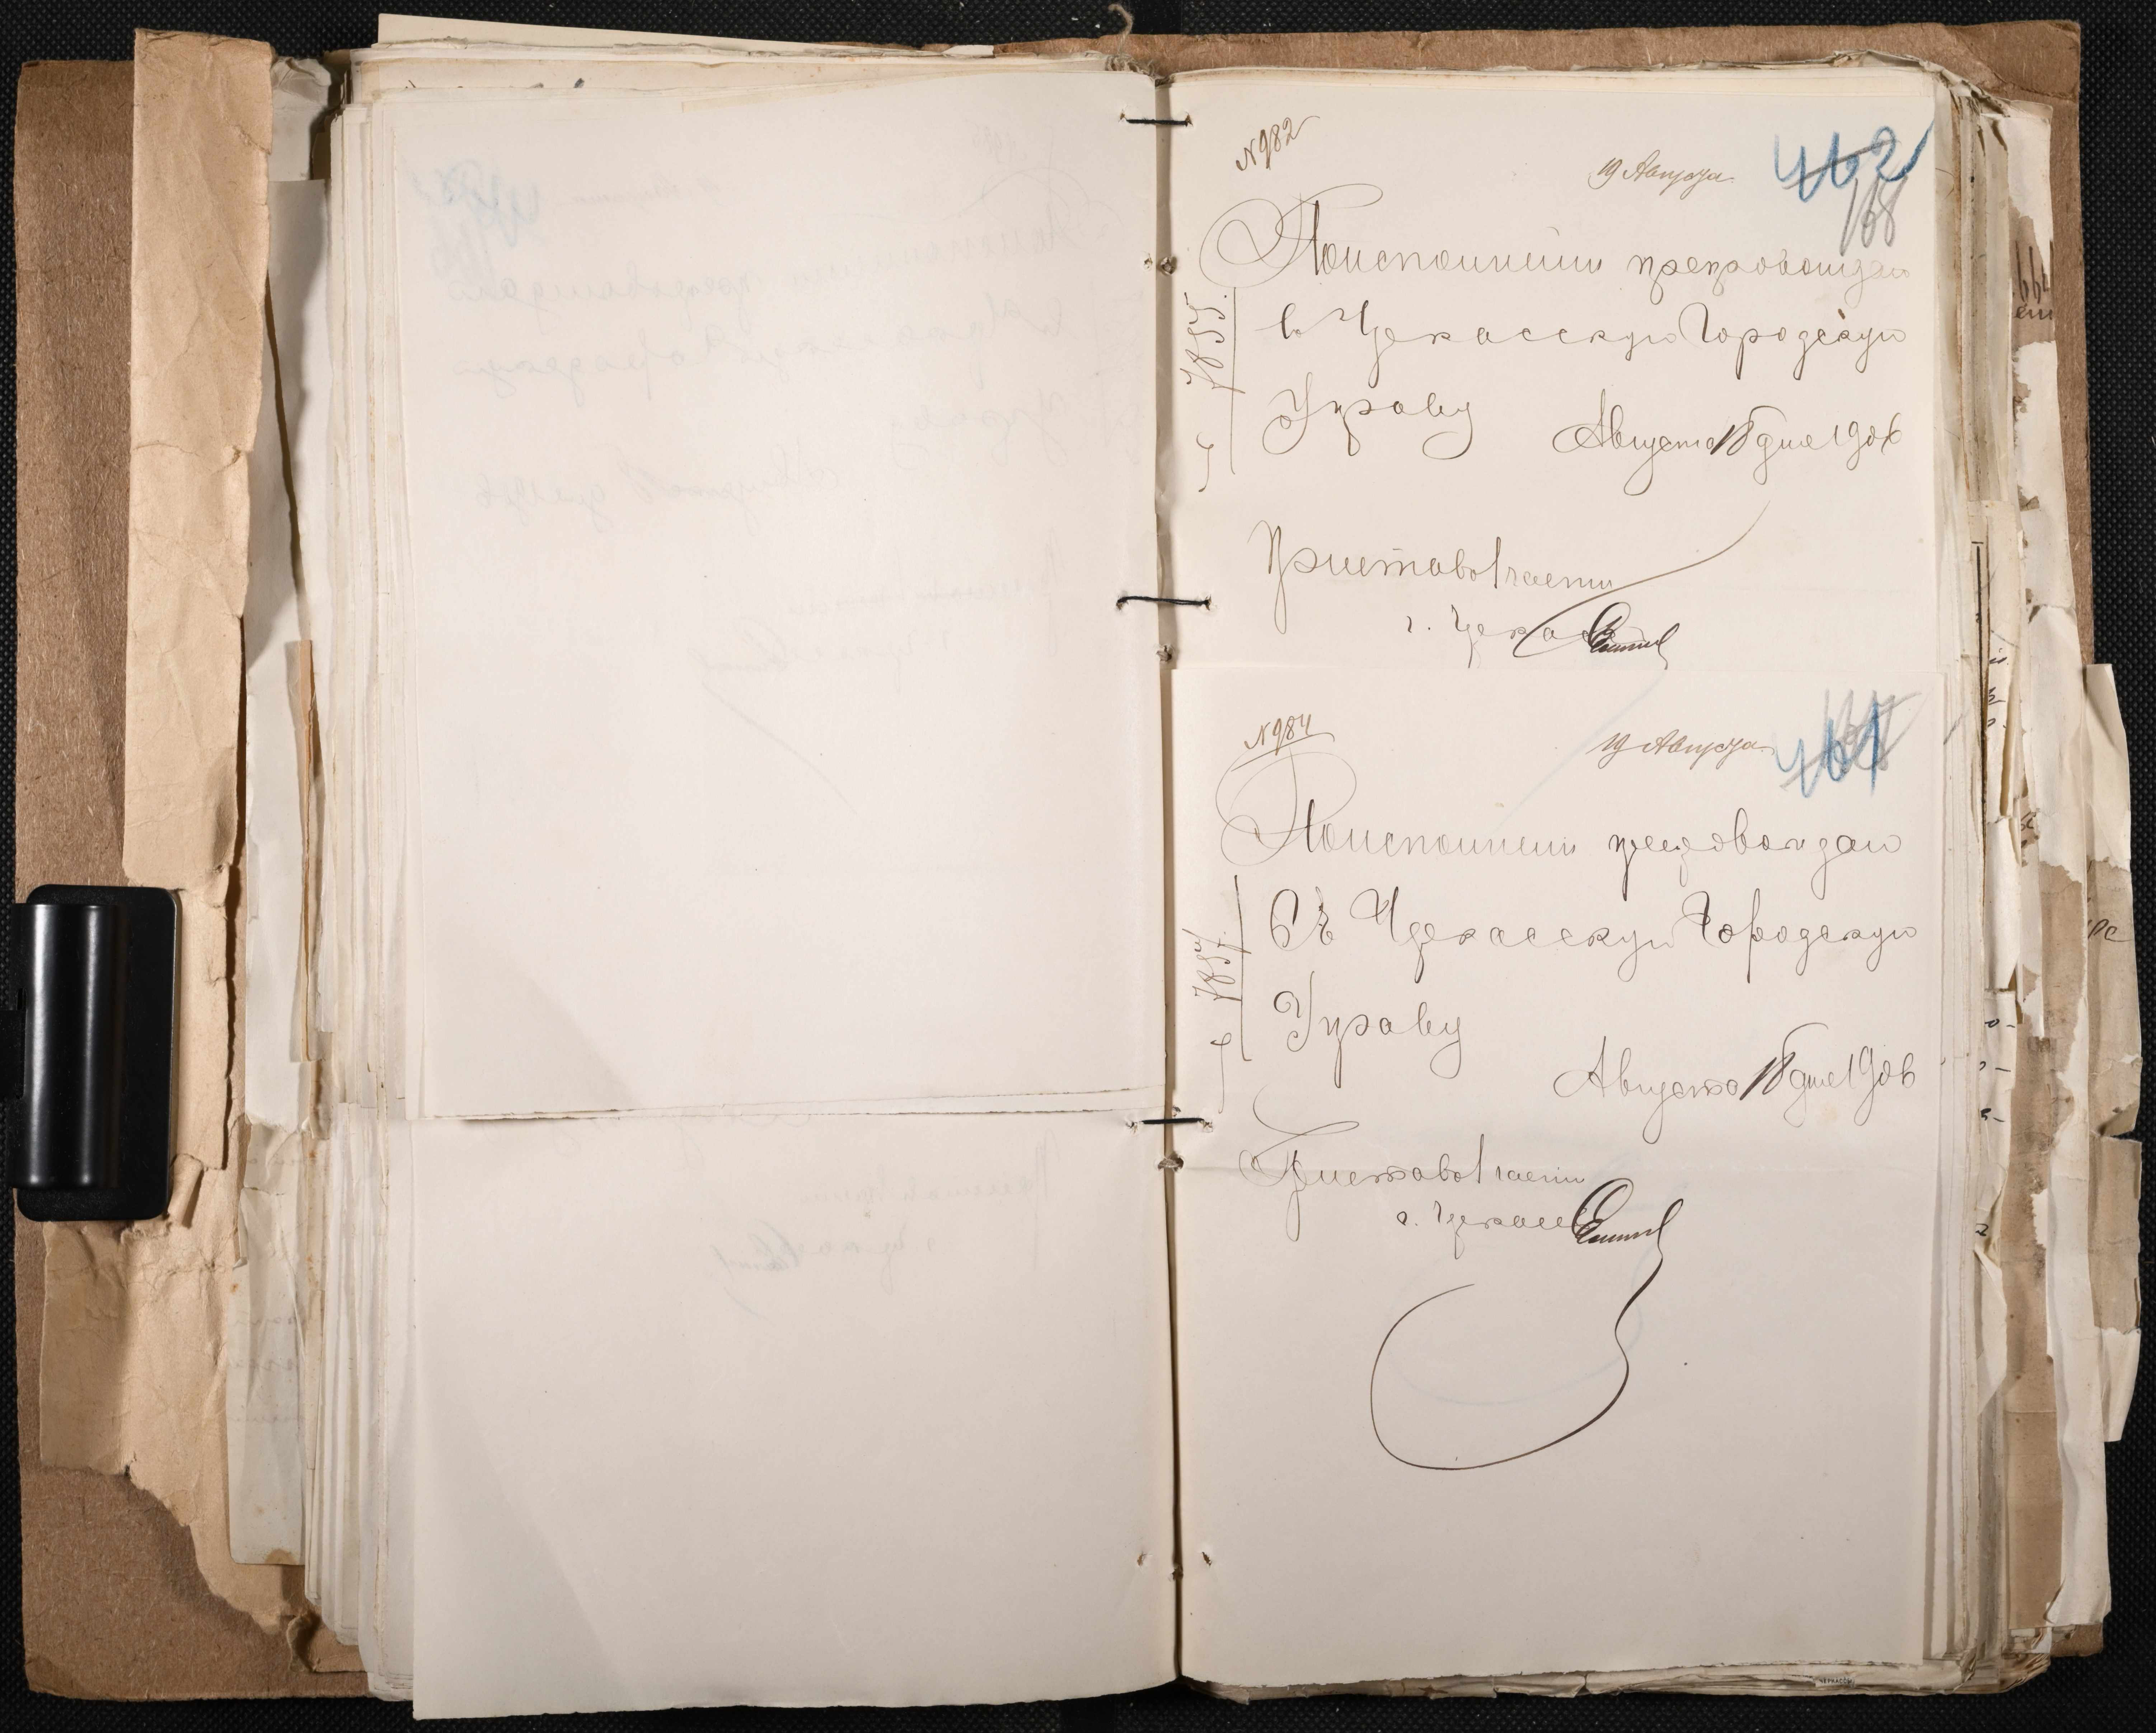 №982
19 Августа
462
168
По исполнении препровождаю
в Черкасскую Городскую
Управу
Августа 18 дня 1906
7855.
Пристав 1 части
г. Черкасс
№984
19 Августа
461
По исполнении препровождаю
Въ Черкасскую Городскую
Управу
Августа 18 дня 1906
7857.
Пристав 1 части
г. Черкасс